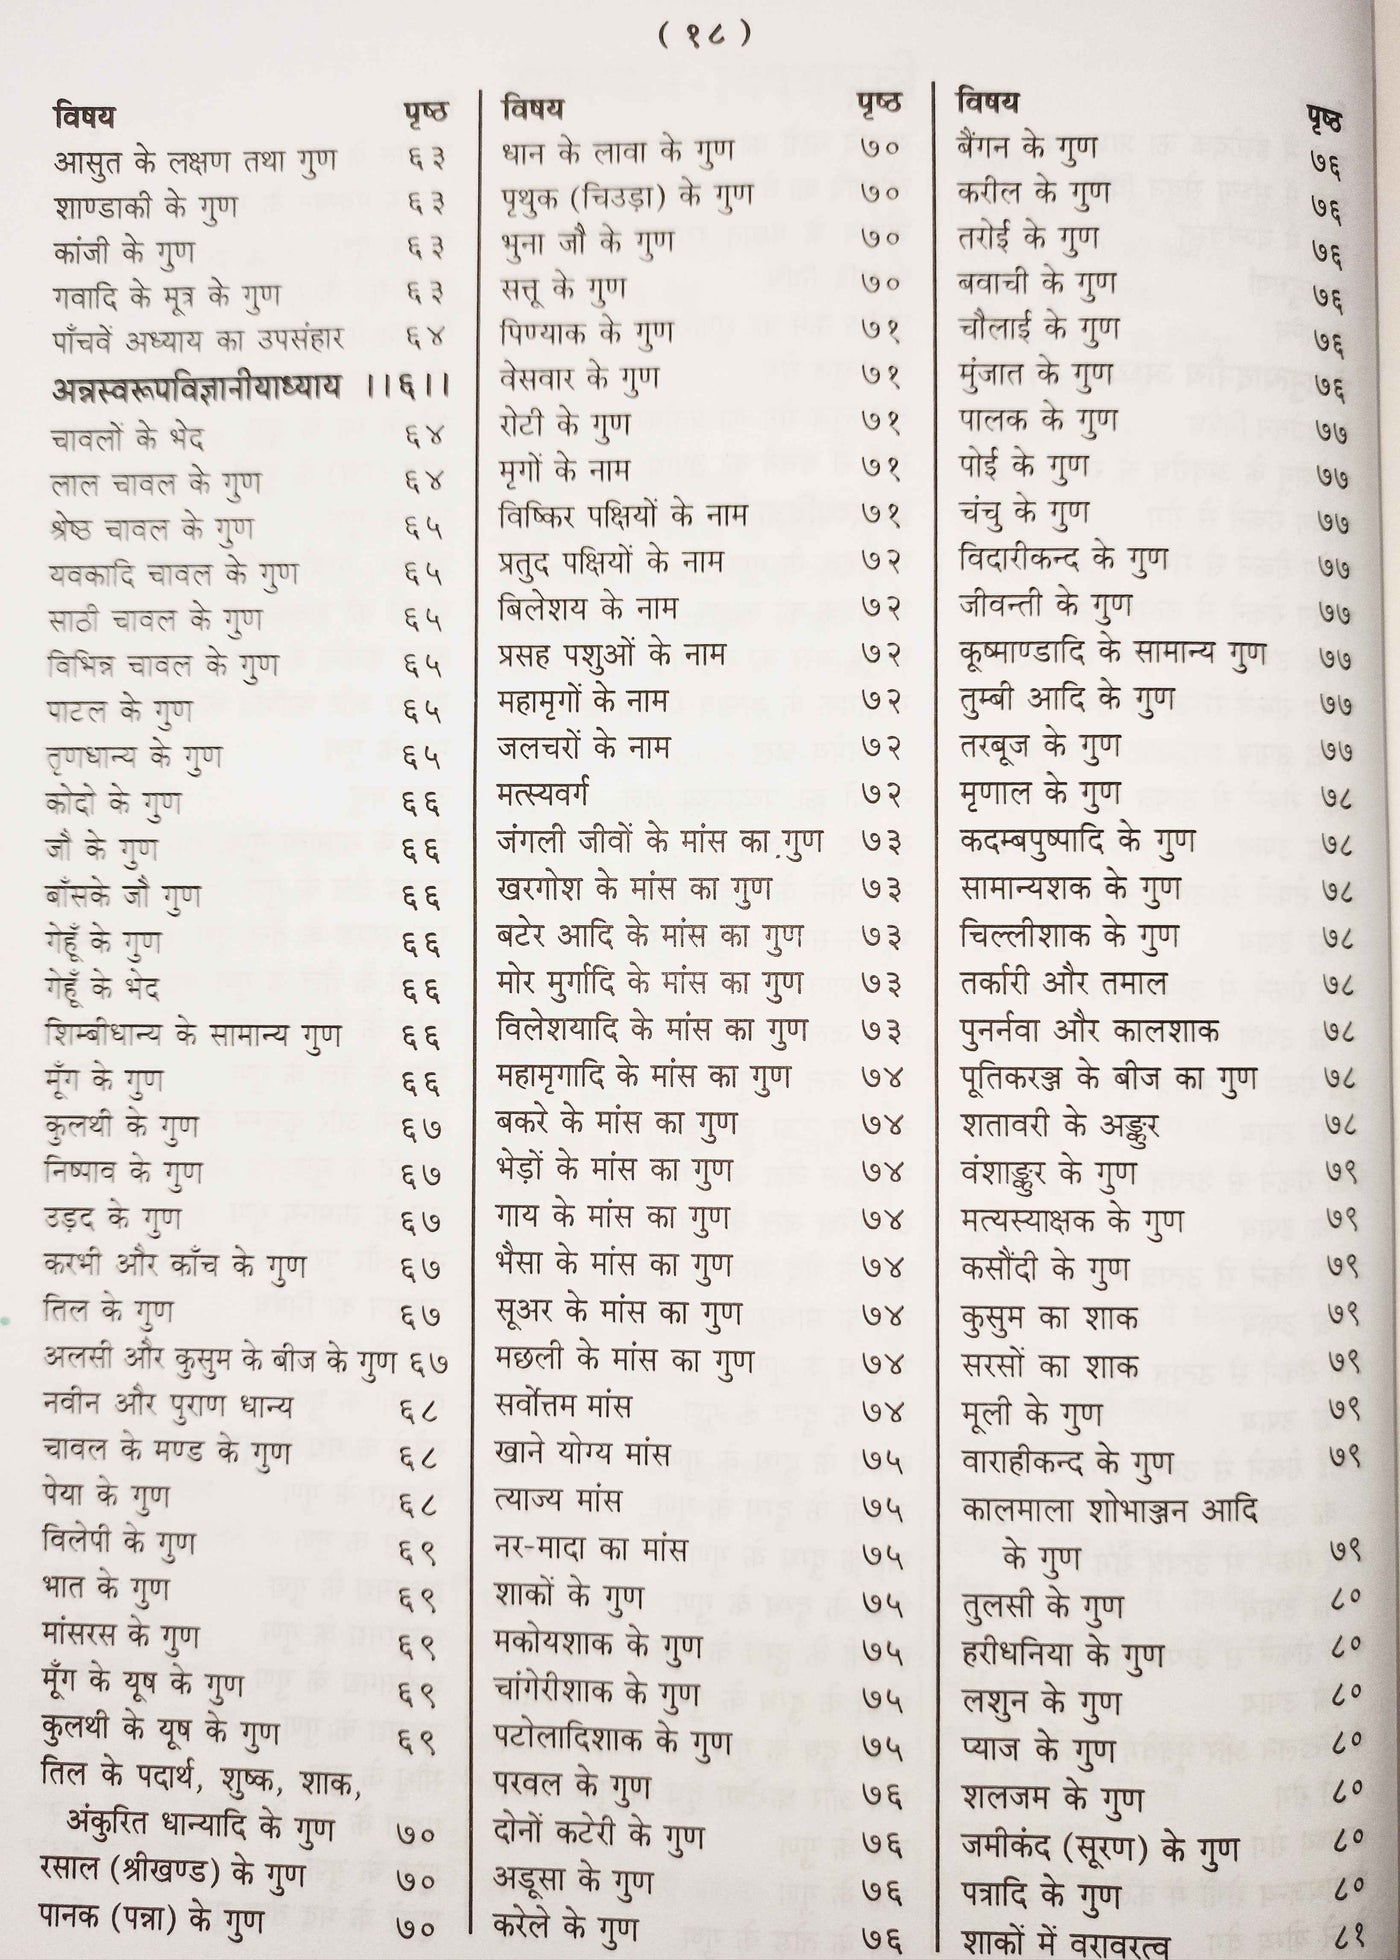 ( १८ )
विषय पृष्ठ
आसुत के लक्षण तथा गुण ६३
शाण्डाकी के गुण ६३
कांजी के गुण ६३
गवादि के मूत्र के गुण ६३
पाँचवें अध्याय का उपसंहार ६४
अन्नस्वरूपविज्ञानीयाध्याय ।।६।।
चावलों के भेद ६४
लाल चावल के गुण ६४
श्रेष्ठ चावल के गुण ६५
यवकादि चावल के गुण ६५
साठी चावल के गुण ६५
विभिन्न चावल के गुण ६५
पाटल के गुण ६५
तृणधान्य के गुण ६५
कोदो के गुण ६६
जौ के गुण ६६
बाँसके जौ गुण ६६
गेहूँ के गुण ६६
गेहूँ के भेद ६६
शिम्बीधान्य के सामान्य गुण ६६
मूँग के गुण ६६
कुलथी के गुण ६७
निष्पाव के गुण ६७
उड़द के गुण ६७
करभी और काँच के गुण ६७
तिल के गुण ६७
अलसी और कुसुम के बीज के गुण ६७
नवीन और पुराण धान्य ६८
चावल के मण्ड के गुण ६८
पेया के गुण ६८
विलेपी के गुण ६९
भात के गुण ६९
मांसरस के गुण ६९
मूँग के यूष के गुण ६९
कुलथी के यूष के गुण ६९
तिल के पदार्थ, शुष्क, शाक,
अंकुरित धान्यादि के गुण ७०
रसाल (श्रीखण्ड) के गुण ७०
पानक (पन्ना) के गुण ७०
विषय पृष्ठ
धान के लावा के गुण ७०
पृथुक (चिउड़ा) के गुण ७०
भुना जौ के गुण ७०
सत्तू के गुण ७०
पिण्याक के गुण ७१
वेसवार के गुण ७१
रोटी के गुण ७१
मृगों के नाम ७१
विष्किर पक्षियों के नाम ७१
प्रतुद पक्षियों के नाम ७२
बिलेशय के नाम ७२
प्रसह पशुओं के नाम ७२
महामृगों के नाम ७२
जलचरों के नाम ७२
मत्स्यवर्ग ७२
जंगली जीवों के मांस का गुण ७३
खरगोश के मांस का गुण ७३
बटेर आदि के मांस का गुण ७३
मोर मुर्गादि के मांस का गुण ७३
विलेशयादि के मांस का गुण ७३
महामृगादि के मांस का गुण ७४
बकरे के मांस का गुण ७४
भेड़ों के मांस का गुण ७४
गाय के मांस का गुण ७४
भैसा के मांस का गुण ७४
सूअर के मांस का गुण ७४
मछली के मांस का गुण ७४
सर्वोत्तम मांस ७४
खाने योग्य मांस ७५
त्याज्य मांस ७५
नर-मादा का मांस ७५
शाकों के गुण ७५
मकोयशाक के गुण ७५
चांगेरीशाक के गुण ७५
पटोलादिशाक के गुण ७५
परवल के गुण ७६
दोनों कटेरी के गुण ७६
अडूसा के गुण ७६
करेले के गुण ७६
विषय पृष्ठ
बैंगन के गुण ७६
करील के गुण ७६
तरोई के गुण ७६
बवाची के गुण ७६
चौलाई के गुण ७६
मुंजात के गुण ७६
पालक के गुण ७७
पोई के गुण ७७
चंचु के गुण ७७
विदारीकन्द के गुण ७७
जीवन्ती के गुण ७७
कूष्माण्डादि के सामान्य गुण ७७
तुम्बी आदि के गुण ७७
तरबूज के गुण ७७
मृणाल के गुण ७८
कदम्बपुष्पादि के गुण ७८
सामान्यशक के गुण ७८
चिल्लीशाक के गुण ७८
तर्कारी और तमाल ७८
पुनर्नवा और कालशाक ७८
पूतिकरञ्ज के बीज का गुण ७८
शतावरी के अङ्कुर ७८
वंशाङ्कुर के गुण ७९
मत्यस्याक्षक के गुण ७९
कसौंदी के गुण ७९
कुसुम का शाक ७९
सरसों का शाक ७९
मूली के गुण ७९
वाराहीकन्द के गुण ७९
कालमाला शोभाञ्जन आदि
के गुण ७९
तुलसी के गुण ८०
हरीधनिया के गुण ८०
लशुन के गुण ८०
प्याज के गुण ८०
शलजम के गुण ८०
जमीकंद (सूरण) के गुण ८०
पत्रादि के गुण ८०
शाकों में वरावरत्व ८१